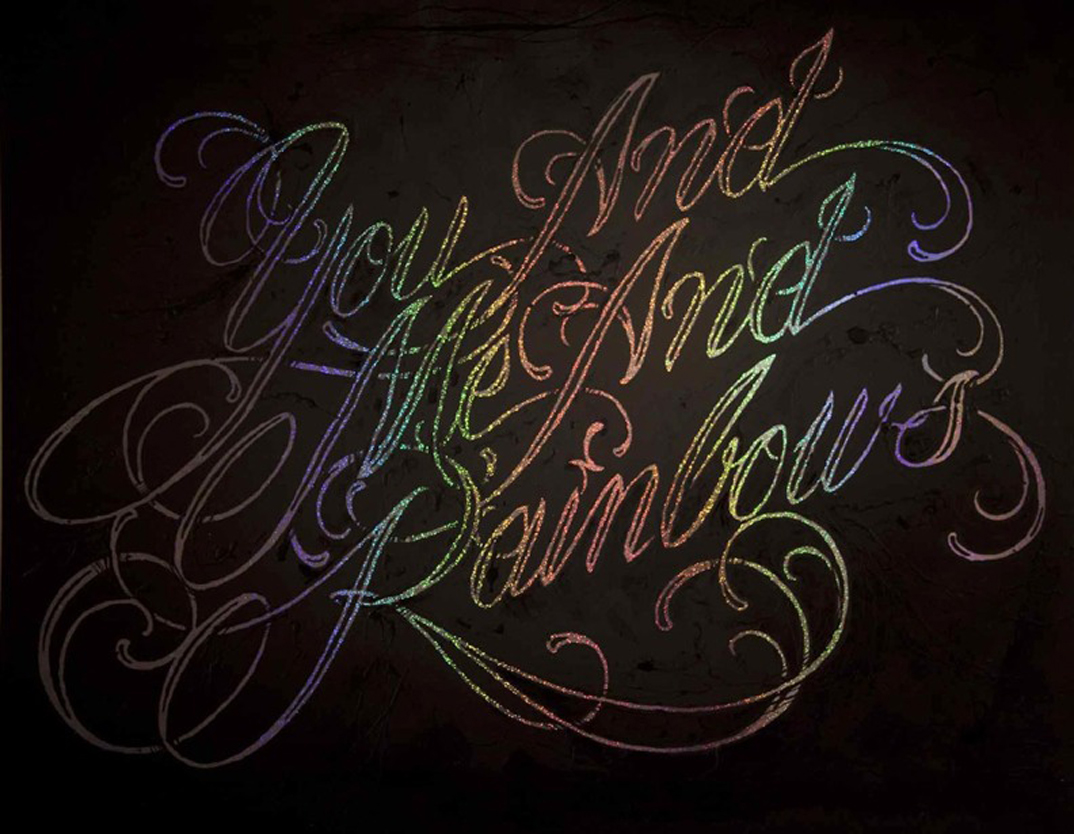 You And
Me And
Rainbows